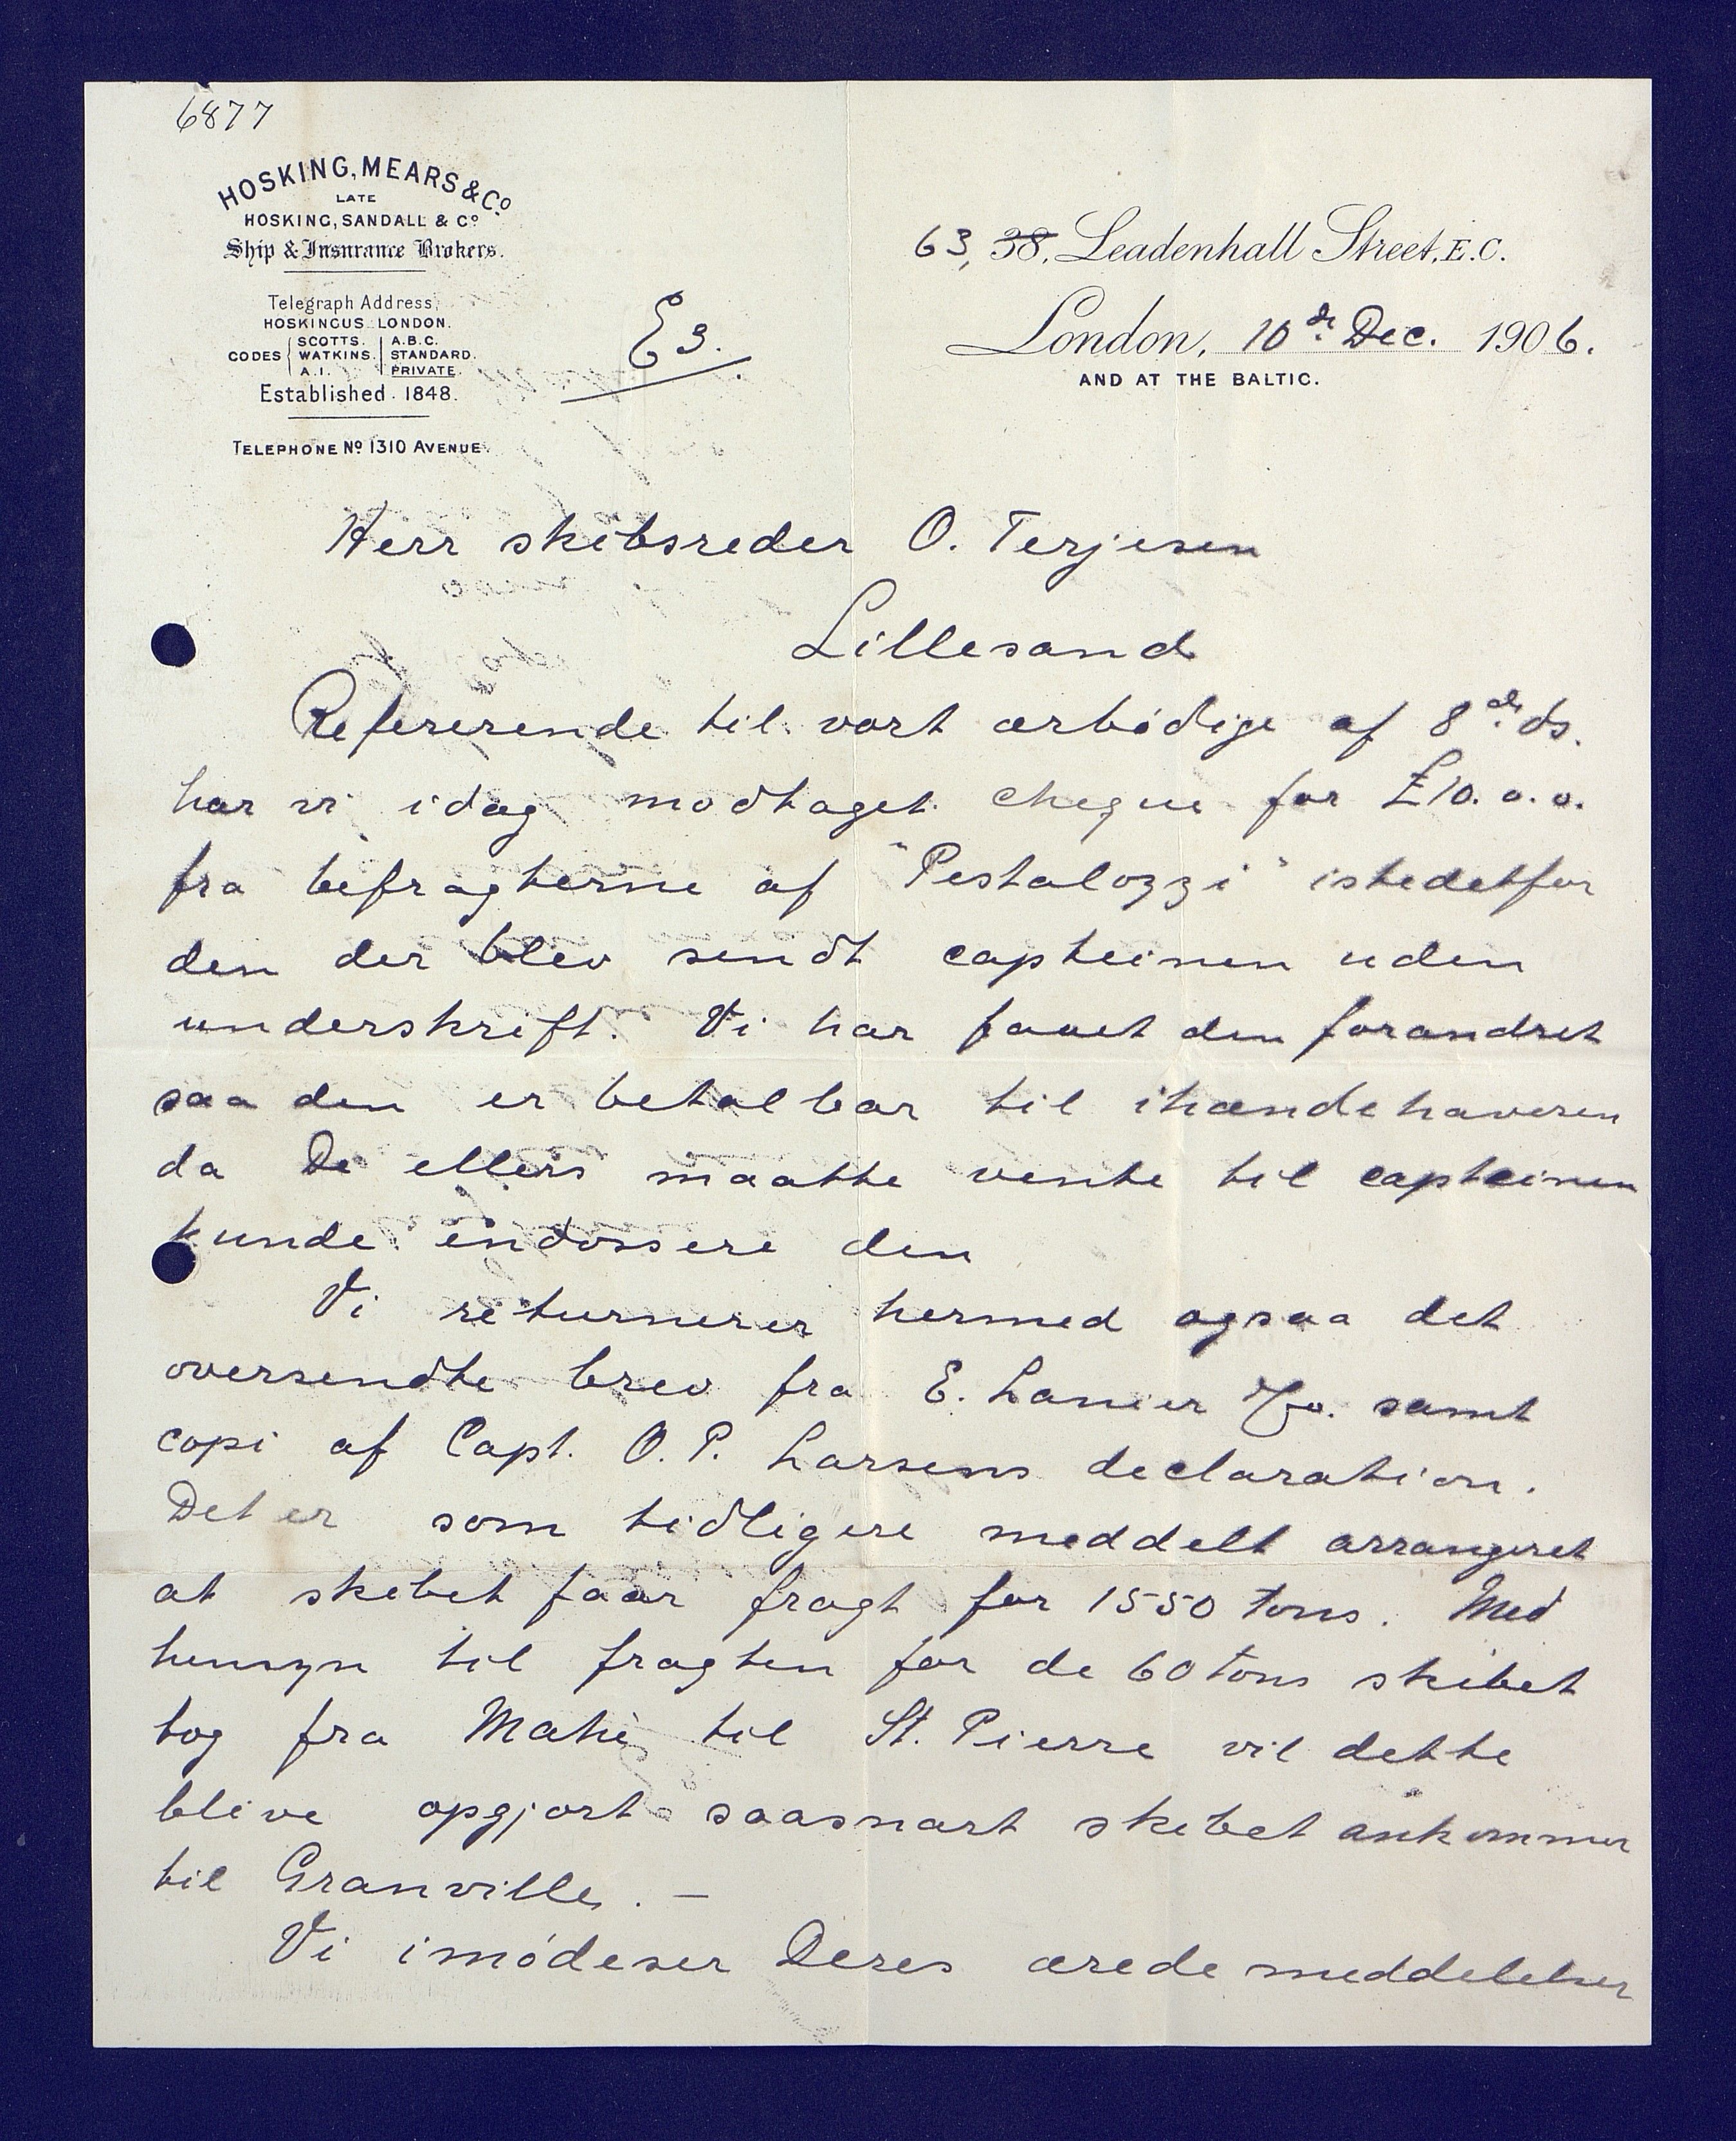 6877
HOSKING, MEARS & Co
LATE
HOSKING, SANDALL & Co
Ship & Insurance Brokers.
Telegraph Address,
HOSKINGUS LONDON.
CODES { SCOTTS. WATKINS. A.I. | A.B.C. STANDARD. PRIVATE.
Established 1848.
TELEPHONE No 1310 AVENUE.
63, 38, Leadenhall Street, E.C.
London, 10de Dec. 1906.
AND AT THE BALTIC.
Herr skibsreder O. Terjesen
Lillesand
Refererende til vort ærbödige af 8de ds.
har vi idag modtaget cheque for £10.0.0.
fra befragterne af "Pestalozzi" istedetfor
den der blev sendt capteinen uden
underskrift. Vi har faaet den forandret
saa den er betalbar til ihændehaveren
da De ellers maatte vente til capteinen
kunde endossere den
Vi returnerer hermed ogsaa det
oversendte brev fra E. Lanier & Co. samt
copi af Capt. O. P. Larsens declaration.
Det er som tidligere meddelt arrangeret
at skibet faar fragt for 1550 tons. Med
hensyn til fragten for de 60 tons skibet
tog fra Mahé til St. Pierre vil dette
blive opgjort saasnart skibet ankommer
til Granville. –
Vi imödeser Deres ærede meddelelser